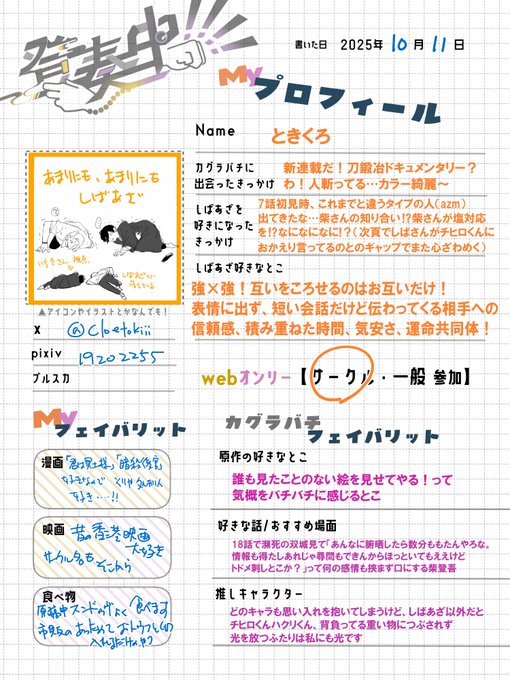 登表中
書いた日 2025年 10月 11日
My プロフィール
Name ときくろ
カグラバチに
出会ったきっかけ
新連載だ！刀鍛冶ドキュメンタリー？
わ！人斬ってる…カラー綺麗〜
しばあざを
好きになった
きっかけ
7話初見時、これまでと違うタイプの人（azm）
出てきたな…柴さんの知り合い!?柴さんが塩対応
を!?なになになに？（次頁でしばさんがチヒロくんに
おかえり言ってるのとのギャップでまた心ざわめく）
しばあざ好きなとこ
強×強！互いをころせるのはお互いだけ！
表情に出ず、短い会話だけど伝わってくる相手への
信頼感、積み重ねた時間、気安さ、運命共同体！
あまりにも、あまりにも
しばあざ
▲アイコンやイラストとかなんでも！
X @cloetokiii
pixiv 19202255
ブルスカ
webオンリー【サークル・一般 参加】
My フェイバリット
漫画
映画 昔の香港映画
大好き
サークル名も
そこから
食べ物
カグラバチ フェイバリット
原作の好きなとこ
誰も見たことのない絵を見せてやる！って
気概をバチバチに感じるとこ
好きな話/おすすめ場面
18話で瀕死の双城見て「あんなに腑晒したら数分ももたんやろな。
情報も得たしあれじゃ尋問もできんからほっといてもええけど
トドメ刺しとこか？」って何の感情も挟まず口にする柴登吾
推しキャラクター
どのキャラも思い入れを抱いてしまうけど、しばあざ以外だと
チヒロくんハクリくん、背負ってる重い物につぶされず
光を放つふたりは私にも光です